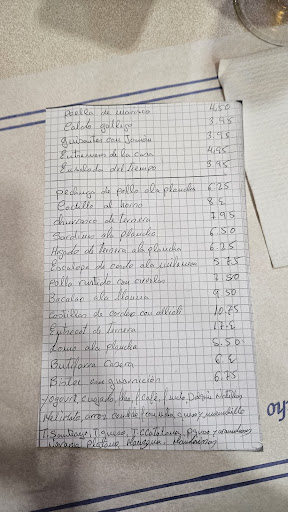 Paella de marisco 4,50
Caldo gallego 3,95
Guisantes con Jamón 3,95
Entremeses de la casa 4,95
Ensalada del tiempo 3,95
pechuga de pollo a la plancha 6.25
Codillo al horno 8 €
churrasco de ternera 7,95
Sardinas a la plancha 6.50
Higado de ternera a la plancha 6.25
Escalope de cerdo a la milanesa 5.75
Pollo guisado con 7,50
Bacalao a la llauna 9,50
Costillas de cordero con allioli 10,75
Entrecot de ternera 17 €
Lomo a la plancha 5.50
Butifarra casera 6 €
Bistec con guarnición 6.75
Yogourt, cuajada, flan, café, Natillas
Melindro, arroz con leche, queso y membrillo
T. Santiago, T. queso, C. Catalana
Naranja Platano Manzana